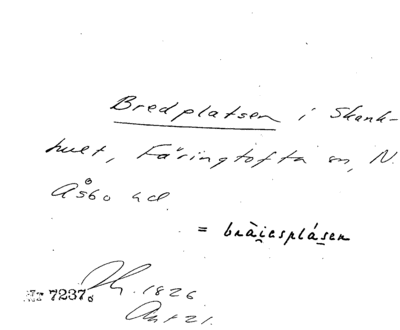 Bredplatsen i Skank-
hult, Färingtofta sn, N.
Åsbo hd
= bràiesplásen
7237
1826
21.